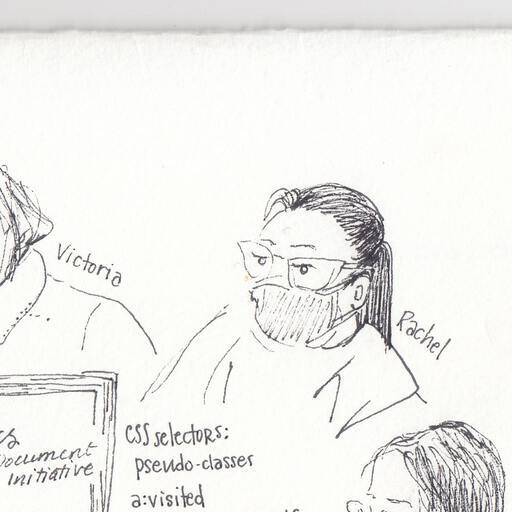 Victoria
Rachel
Document
initiative
CSS selectors:
pseudo-classes
a:visited